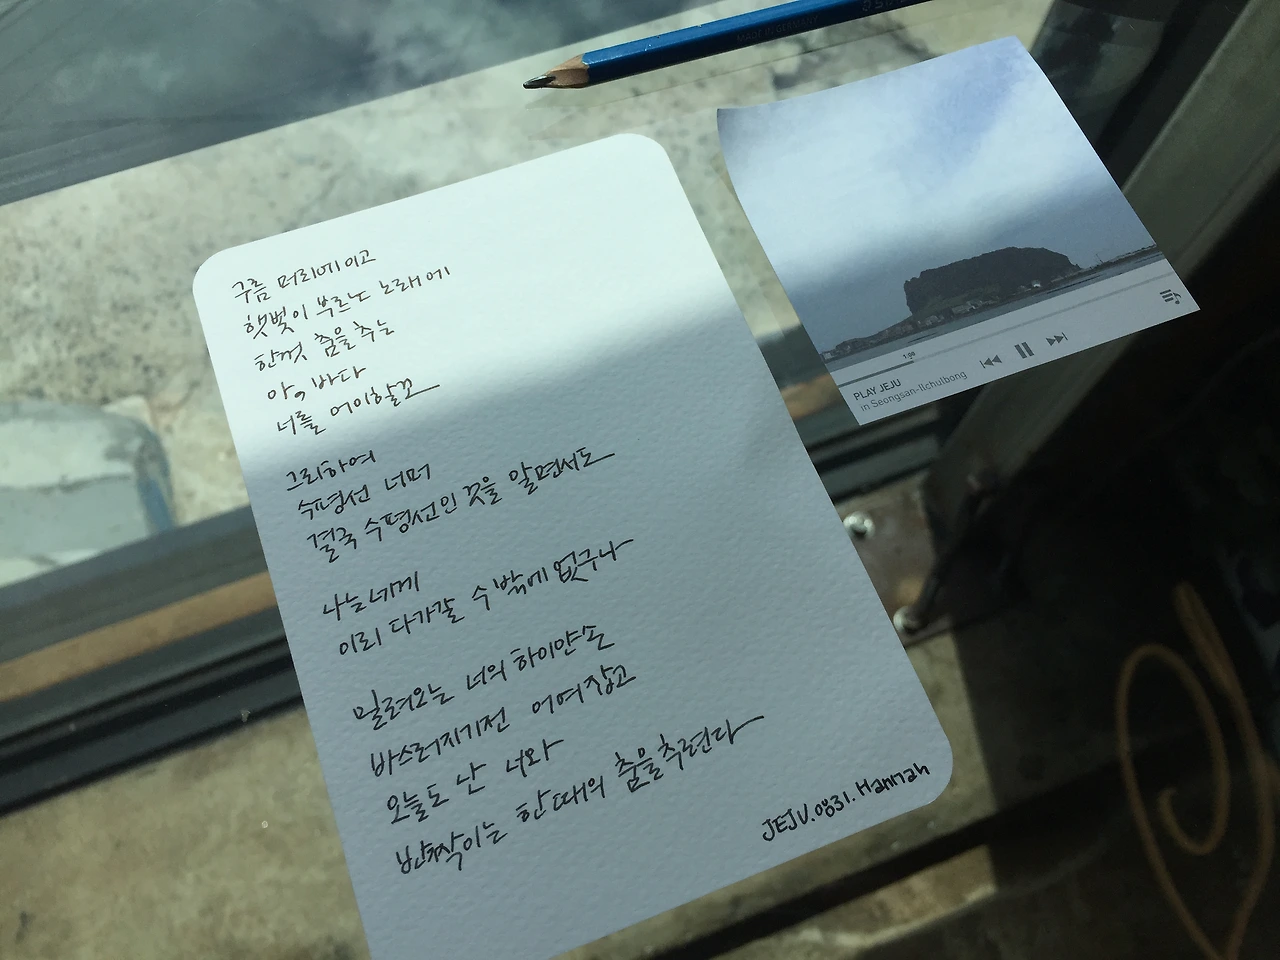 구름 머리에 이고
햇빛이 부르는 노래에
한껏 춤을 추는
아, 바다
너를 어이할꼬
그리하여
수평선 너머
결국 수평선인 것을 알면서도
나는 네게
이리 다가갈 수 밖에 없구나
밀려오는 너의 하이얀 손
바스러지기 전 어여 잡고
오늘도 난 너와
반짝이는 한 때의 춤을 추련다
JEJU.0831. Hannah
MADE IN GERMANY
1:09
PLAY JEJU
in Seongsan-Ilchulbong